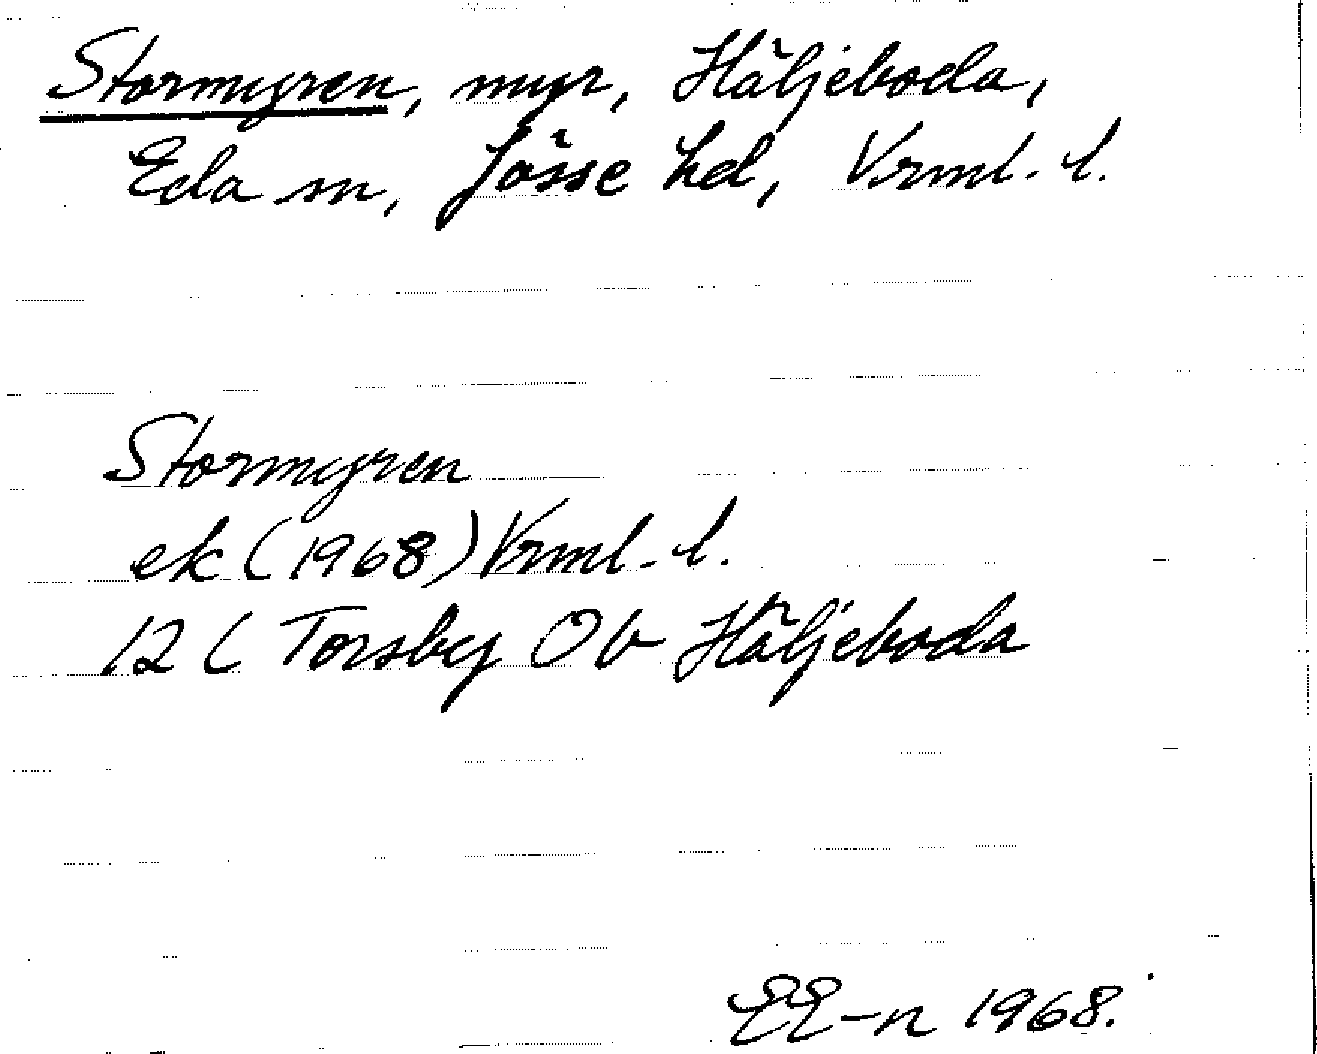 Stormyren, myr, Häljeboda,
Eda sn, Jösse hd, Vrml. l.
Stormyren
ek (1968) Vrml. l.
12 C Torsby 0b Häljeboda
EE-n 1968.